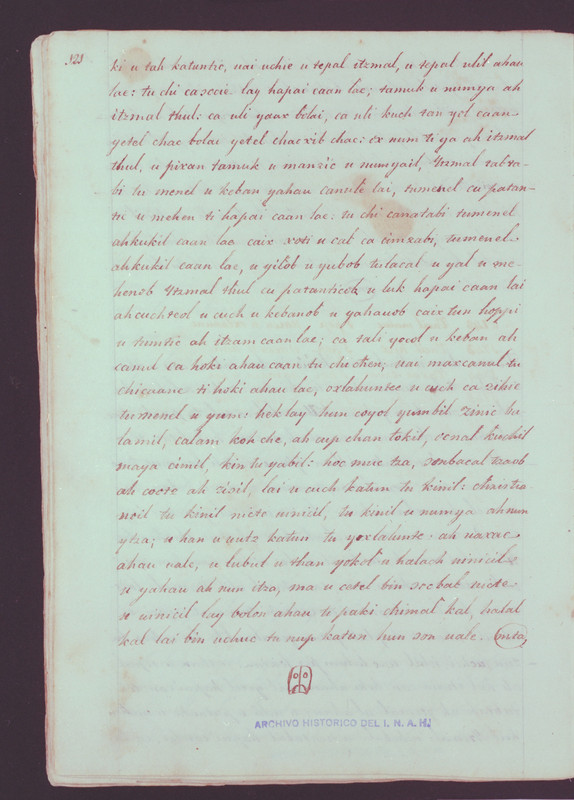 121
ki u tah katunzic, uai uchic u tepal itzmal, u tepal ulil ahau
lae: tu chi cascie lay hapai caan lae; tamuk u numya ah
itzmal thul: ca uli yaax bolai, ca uli kuch tan yol caan
yetel chac bolai yetel chac xib chac: ox num ti ya ah itzmal
thul, u pixan tamuk u manzic u numyail, Ytzmal tabta-
bi tu menel u keban yahau canule lai, tumenel cu patan-
tic u mehen ti hapai caan lae: tu chi canatabi tumenel
ahkukil caan lae caix xoti u cal ca cimzabi, tumenel
ahkukil caan lae, u yilob u yubob tulacal u yal u me-
henob Ytzmal thul cu patanticob u luk hapai caan lai
ahcuchteol u cuch u kebanob u yahauob caix tun hoppi
u tuntic ah itzam caan lae; ca tali yool u keban ah
canul ca hoki ahau caan tu chi chen; uai maxcanul tu
chicaane ti hoki ahau lae, oxlahunte u cuch ca zihic
tumenel u yum: hek lay hun coyol yumbil zinic ba
lamil, calam koh che, ah cup chan tokil, ocnal kuchil
maya cimil, kin tu yabil: hoc muc tza, tonbacal tzuob
ah coote ah zizil, lai u cuch katun tu kinil: christia
noil tu kinil nicte uinicil, tu kinil u numya ah nun
ytza; u han u uutz katun tu yoxlahunte: ah uaxac
ahau uale, u lubul u than yokol u halach uinicil
u yahau ah nun itza, ma u cetel bin tocbal nicte
u uinicil lay bolon ahau ti paki chimal kal, halal
kal lai bin uchuc tu nup katun hun ton uale.
ARCHIVO HISTORICO DEL I. N. A. H.